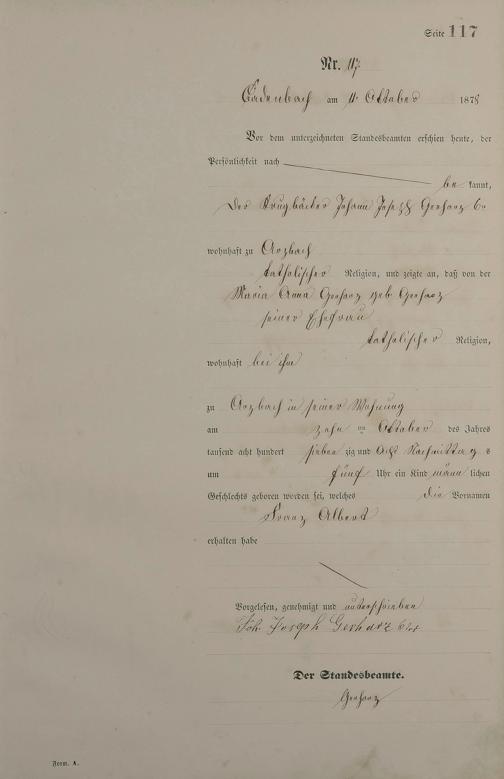 Seite 117
Nr. 117.
Cadenbach am 11 Oktober 1878
Vor dem unterzeichneten Standesbeamten erschien heute, der
Persönlichkeit nach
be kannt,
Der Krugbäcker Johann Joseph Gerharz 6r
wohnhaft zu Arzbach
katholischer Religion, und zeigte an, daß von der
Maria Anna Gerharz geb Gerharz
seiner Ehefrau
katholischer Religion,
wohnhaft bei ihm
zu Arzbach in seiner Wohnung
am zehn ten Oktober des Jahres
tausend acht hundert sieben zig und acht Nachmittag s
um fünf Uhr ein Kind männ lichen
Geschlechts geboren worden sei, welches die Vornamen
Franz Albert
erhalten habe
Vorgelesen, genehmigt und unterschrieben
Joh. Joseph Gerharz 6ter
Der Standesbeamte.
Gerharz
Form. A.